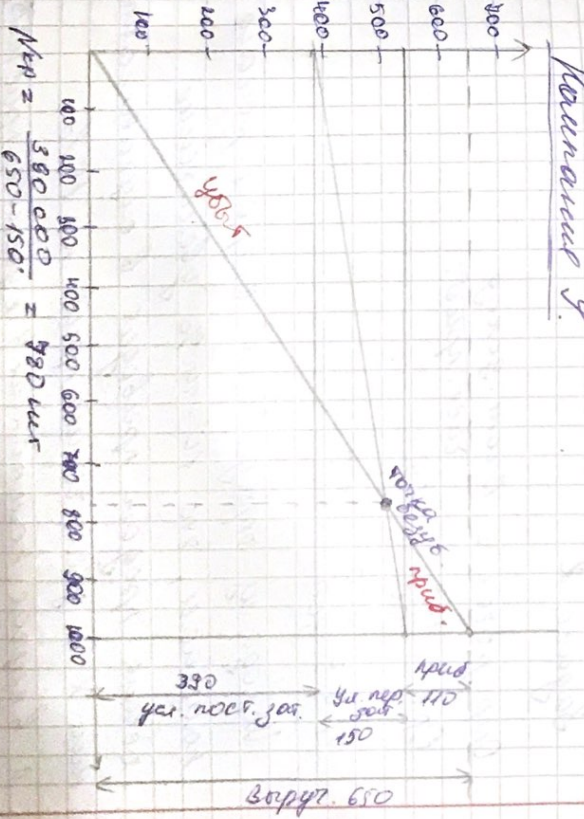 Компания У.
700
600
500
400
300
200
100
100
200
300
400
500
600
700
800
900
1000
убыт
точка
безуб.
приб.
приб
110
ул. пер.
зат
150
390
усл. пост. зат.
выруч. 650
Nкр = 390 000 / 650-150 = 780 шт